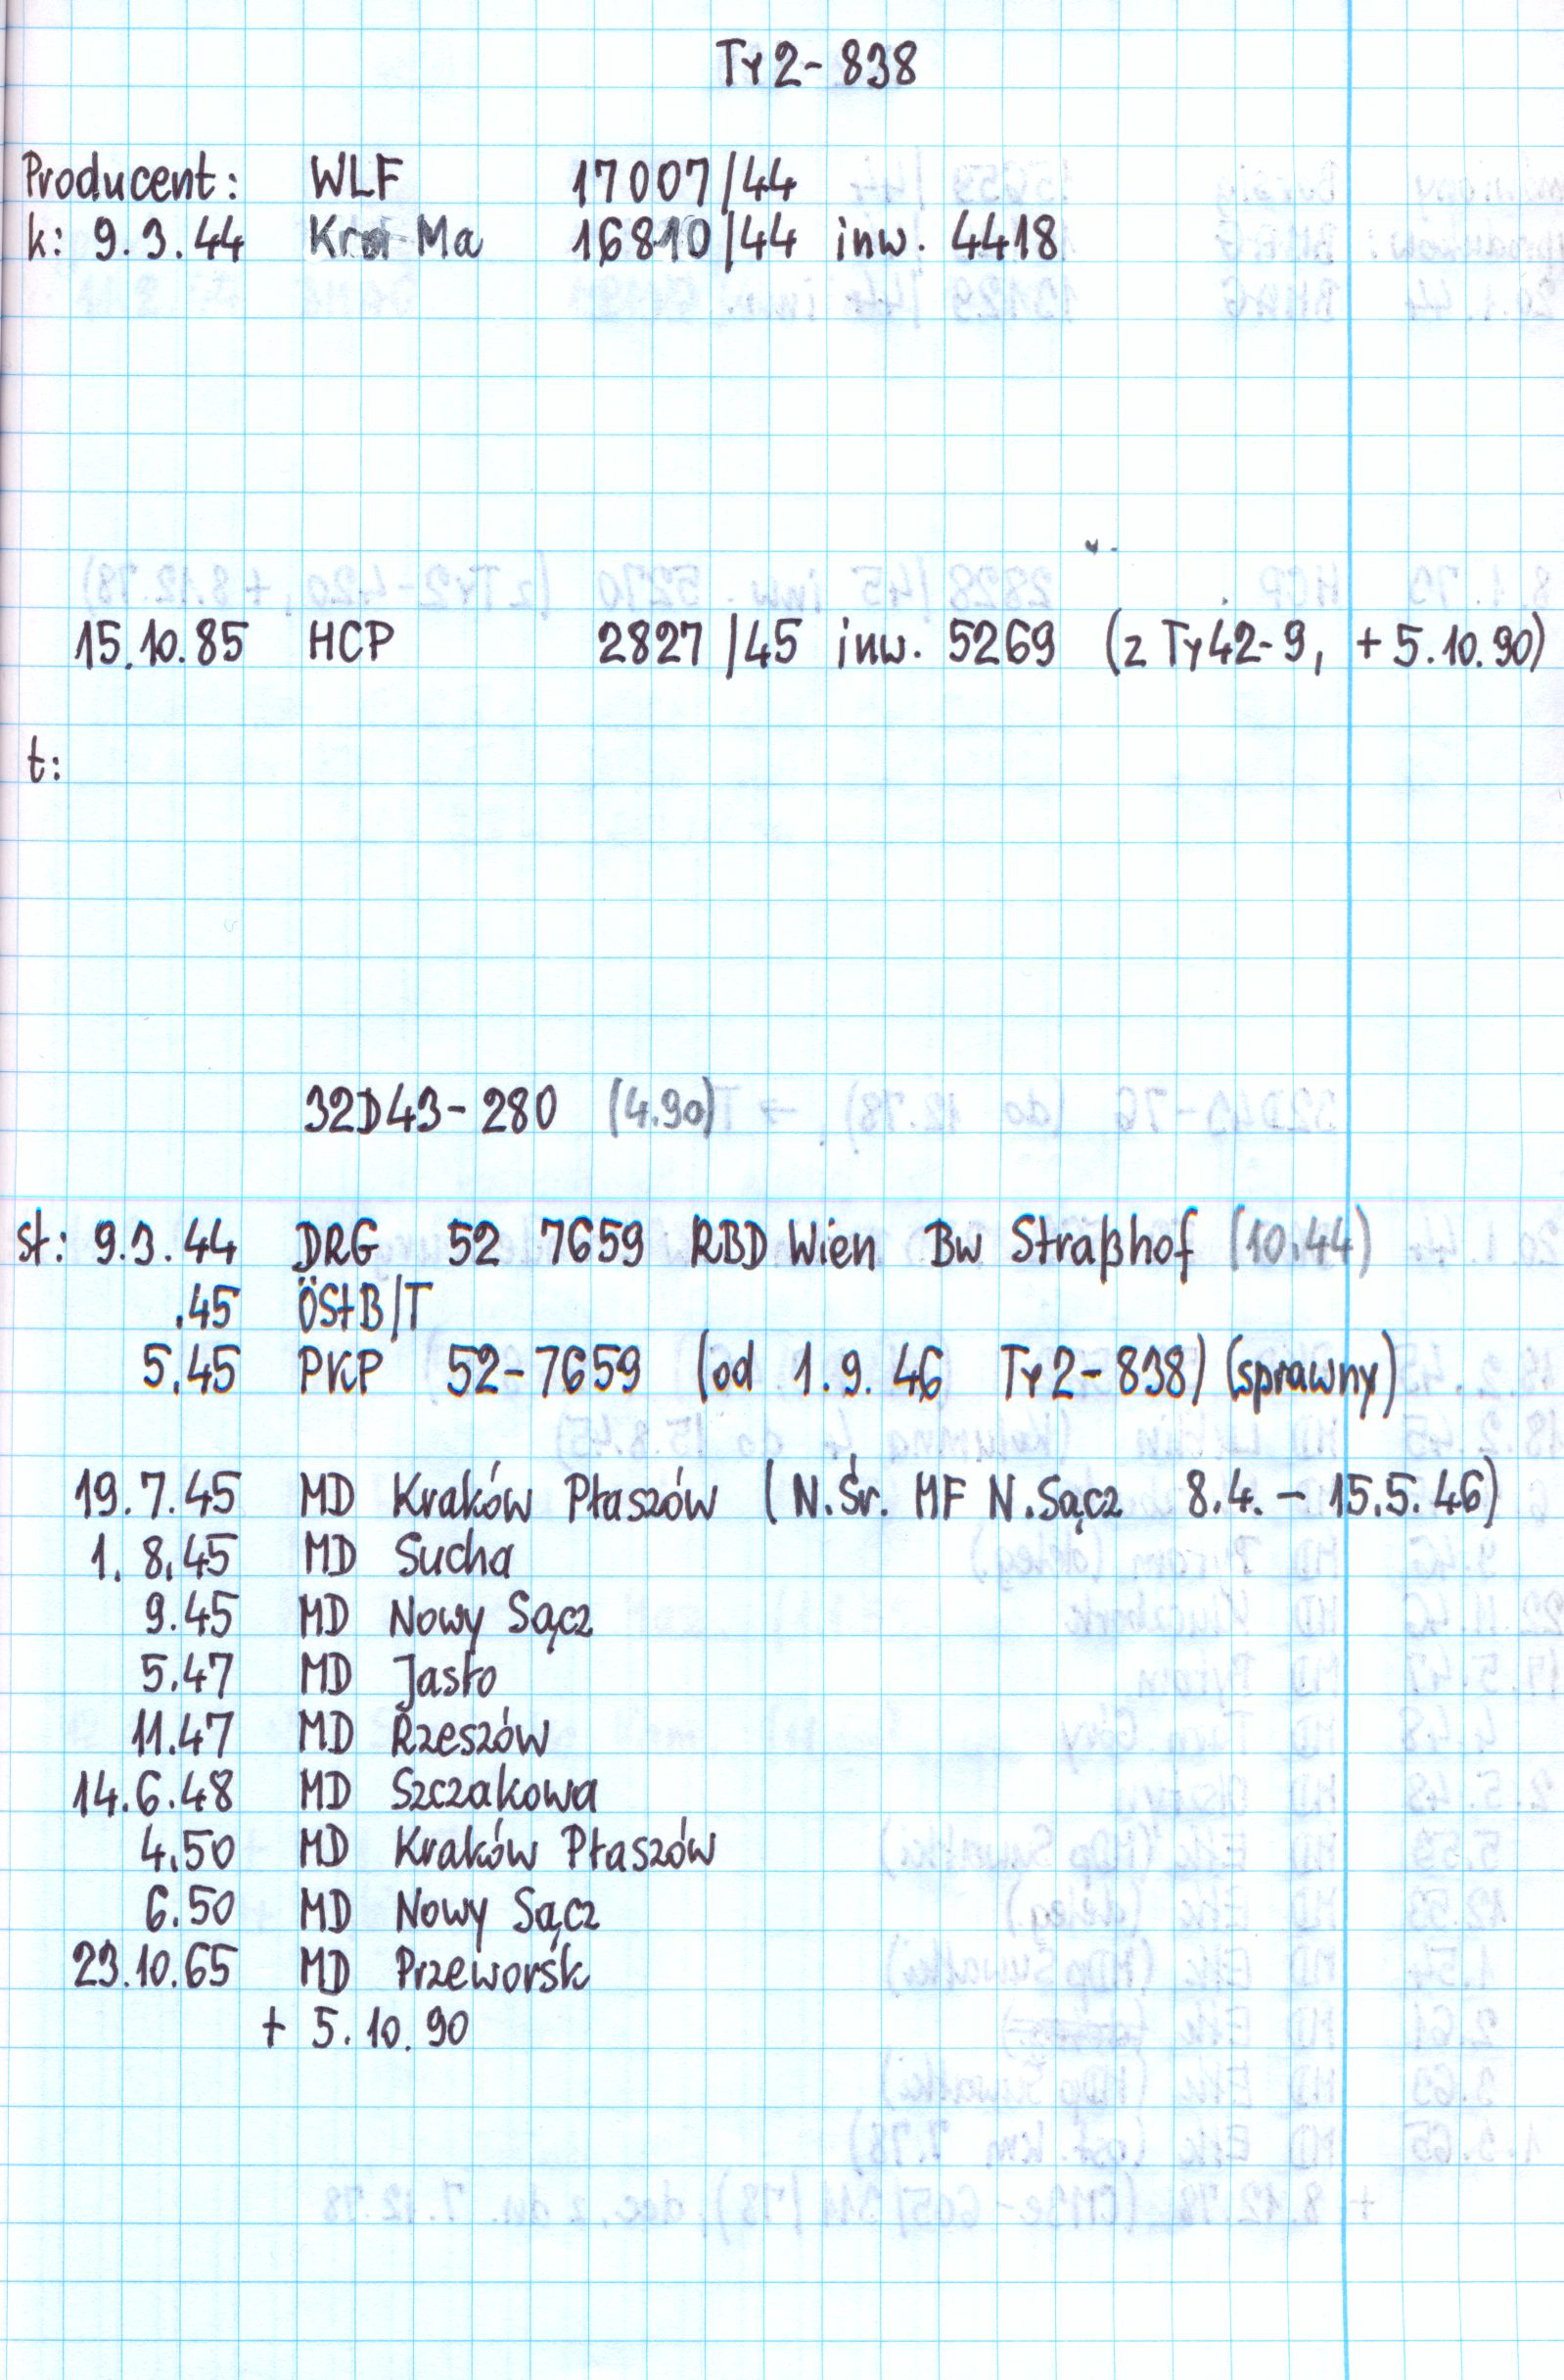 Ty2-838
Producent: WLF 17007/44
k: 9.3.44 Kra Ma 16810/44 inw. 4418
15.10.85 HCP 2827/45 inw. 5269 (z Ty42-9, + 5.10.90)
t:
32D43-280 (4.90)
st: 9.3.44 DRG 52 7659 RBD Wien Bw Straßhof (10.44)
.45 ÖStB/T
5.45 PKP 52-7659 (od 1.9.46 Ty2-838) (sprawny)
19.7.45 MD Kraków Płaszów (N.Śr. MF N.Sącz 8.4. - 15.5.46)
1.8.45 MD Sucha
9.45 MD Nowy Sącz
5.47 MD Jasło
11.47 MD Rzeszów
14.6.48 MD Szczakowa
4.50 MD Kraków Płaszów
6.50 MD Nowy Sącz
23.10.65 MD Przeworsk
+ 5.10.90